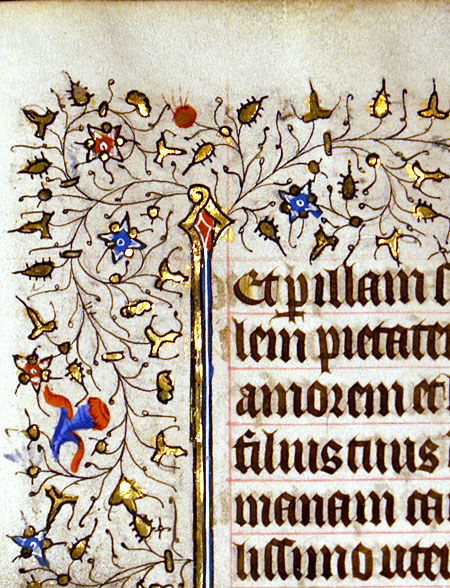 Et ꝑ illam
lem pietatem
amorem et
filius tuus
manam car
lissimo uter